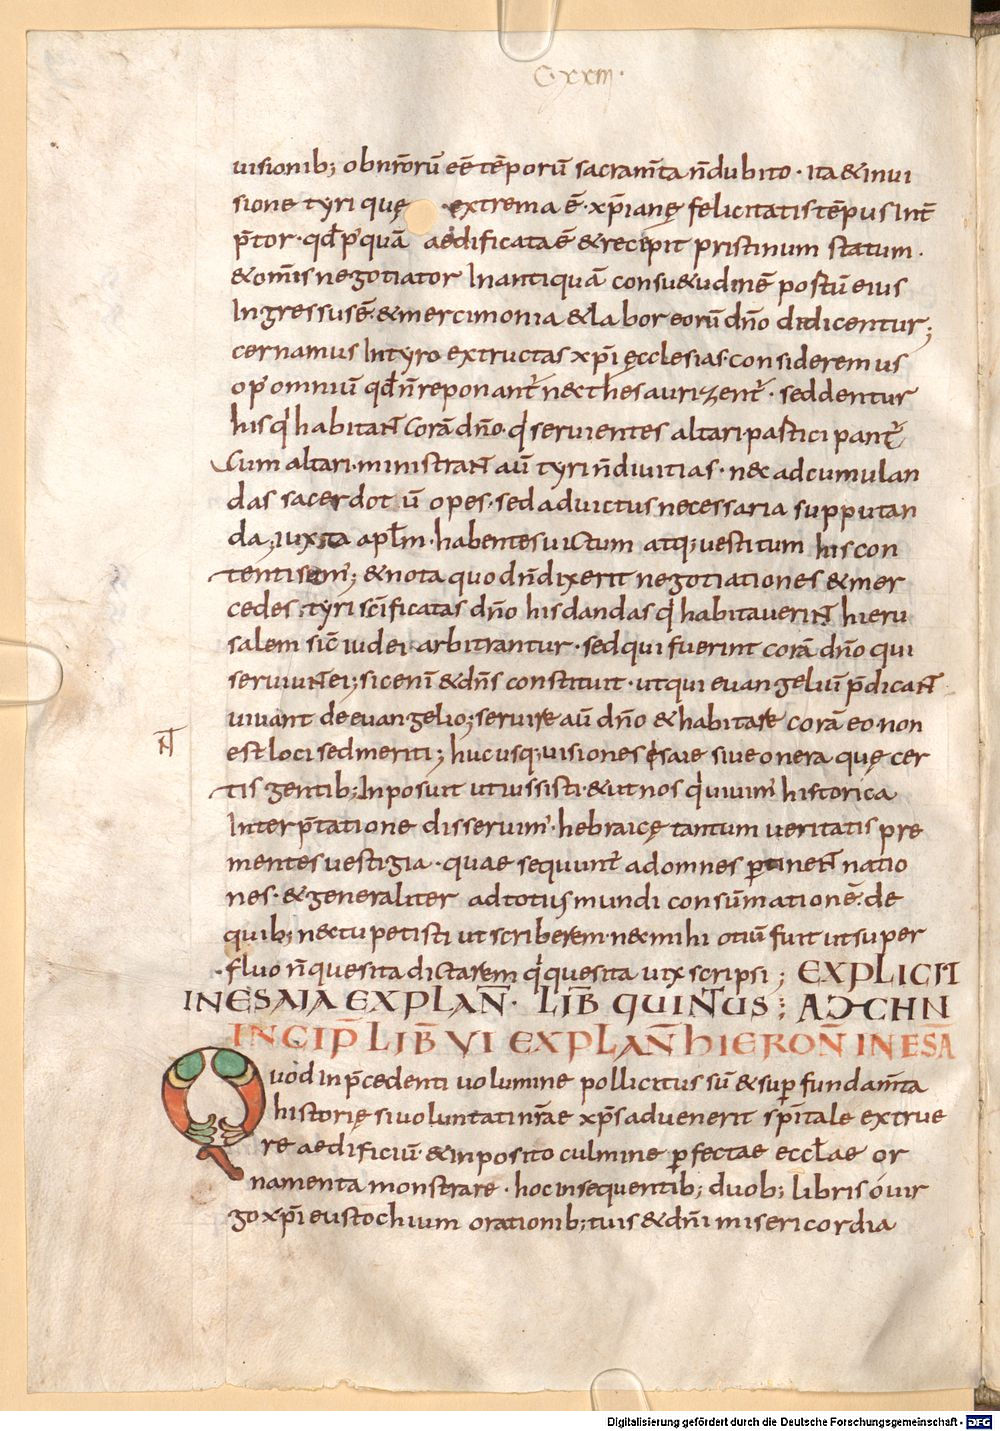 C·xxııı·
uisionib; obnr̄orū eē tēporū sacram̄ta n̄dubito · ita & inui
sione tyri quę · extrema ē · xp̄ianę felicitatis tēpus int̄
p̄tor · qđ p̓quā aedificata ē & recipit pristinum statum ·
& om̄is negotiator in antiquā consu&udinē postū eius
Ingressus ē · & mercimonia & labor eorū dn̄o didicentur;
cernamus Intyro extructas xp̄i ęcclesias · consideremus
op̓ omniū qđ n̄ reponant̄ nec thesaurizent̄ · sed dentur
his q̇ habitaNT Corā dn̄o · q̇ seruientes altari participant̄
Cum altari · ministraNT aū tyri n̄ diuitias · nec adcumulan
das sacerdotū opes · sed ad uictus necessaria supputan
da; iuxta apłm · habentes uictum atq; uestitum his con
tenti sim̓; & nota quod n̄ dixerit negotiationes & mer
cedes tyri scīficatas dn̄o his dandas q̇ habitaueriNT hieru
salem sic̄ iudei arbitrantur · sed qui fuerint corā dn̄o qui
seruiuNT ei; sic enī & dn̄s constituit · ut qui euangeliū p̄dicaNT
uiuant de euangelio; seruire aū dn̄o & habitare corā eo non
NT
est loci sed meriti; hucusq; uisiones esaie siue onera quę cer
tis gentib; Inposuit ut iussisti · & ut nos q̇uiuim̓ historica
Interp̄tatione disseruim̓ · hebraicę tantum ueritatis pre
mentes uestigia · quae sequunt̄ ad omnes ꝑtineNT natio
nes · & generaliter ad totius mundi consūmationē · de
quib; nec tu petisti ut scriberem · nec mihi otiū fuit ut super
fluo n̄ quesita dictarem q̇ quesita uix scripsi; EXPLICIT
IN ESAIA EXPLAN̄ · LIB̄ QUINTUS; AƆCHN
INCIP̄ LIB̄ VI EXPLAN̄ HIERON̄ IN ESĀ
Quod in p̄cedenti uolumine pollicitus sū & suꝑ fundam̄ta
historię si uoluntati nr̄ae xp̄s aduenerit sp̄itale extrue
re aedificiū & inposito culmine ꝑfectae eccłae or
namenta monstrare · hoc in sequentib; duob; libris ó uir
go xp̄i eustochium orationib; tuis & dn̄i misericordia
Digitalisierung gefördert durch die Deutsche Forschungsgemeinschaft - DFG